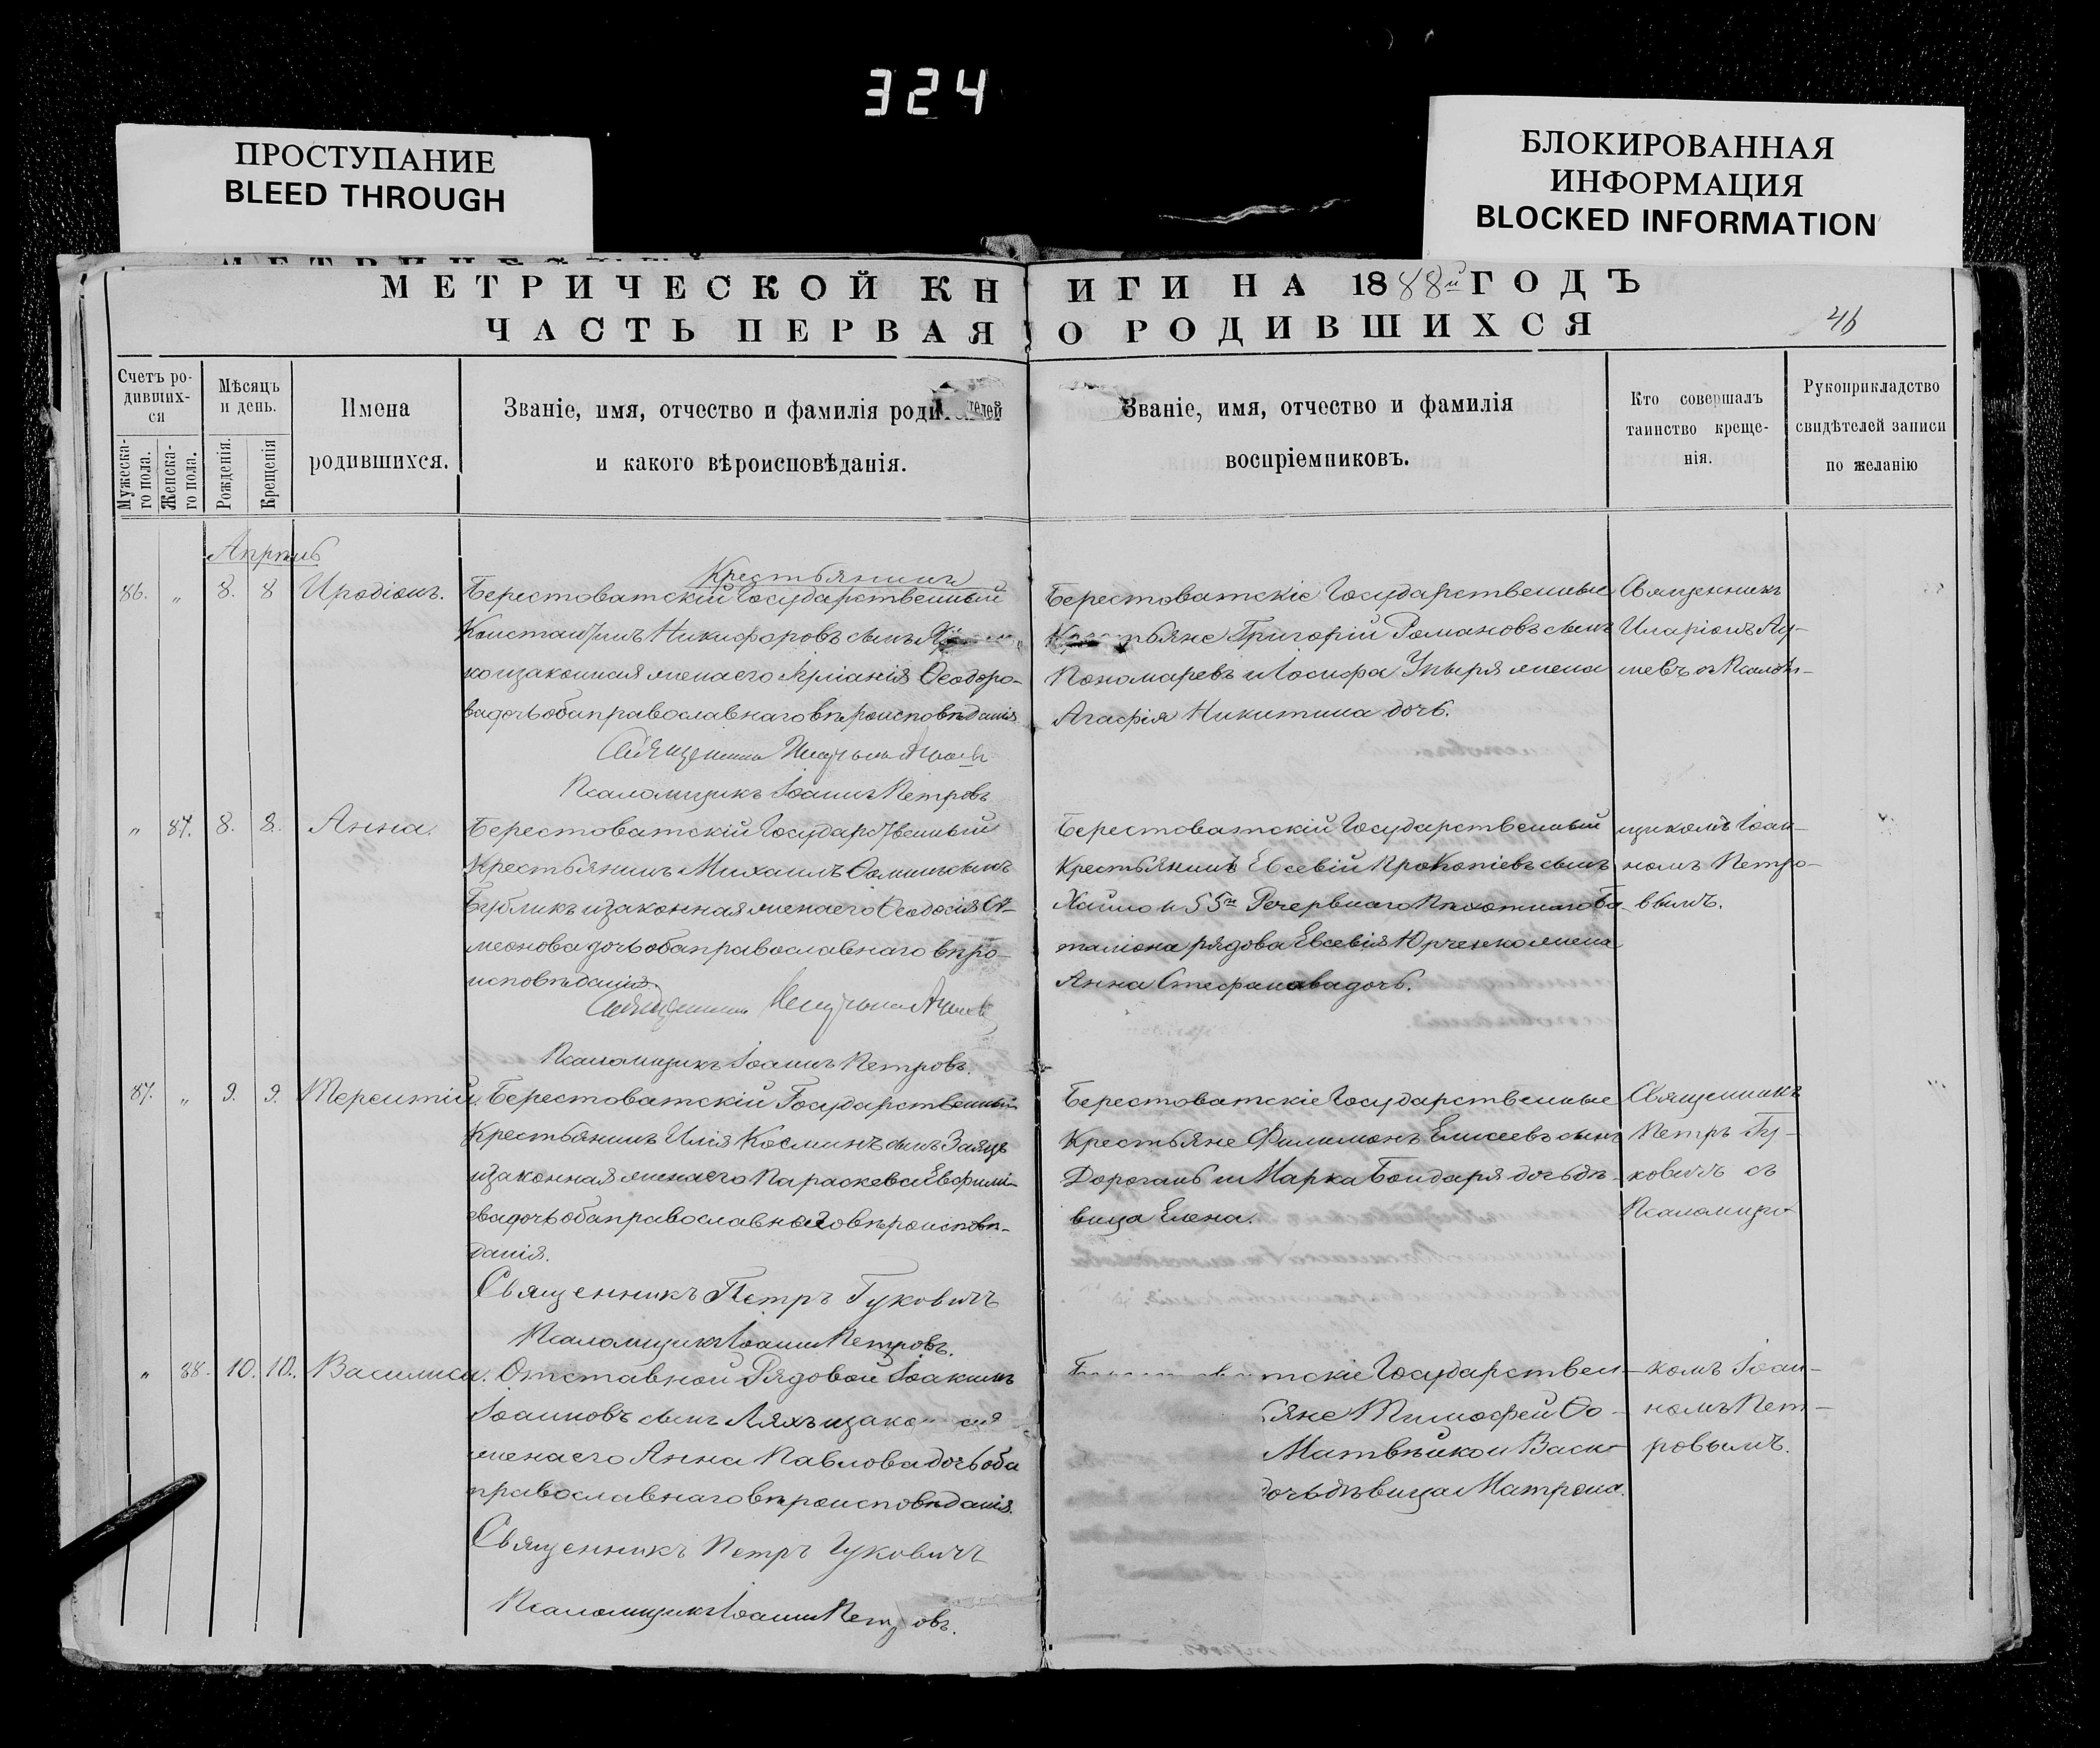 324
ПРОСТУПАНИЕ
BLEED THROUGH
БЛОКИРОВАННАЯ
ИНФОРМАЦИЯ
BLOCKED INFORMATION
МЕТРИЧЕСКОЙ КНИГИ НА 1888й ГОДЪ
ЧАСТЬ ПЕРВАЯ О РОДИВШИХСЯ
46
Счетъ ро-
дивших-
ся
Мужеска-
го пола.
Женска-
го пола.
Мѣсяцъ
и день.
Рожденія.
Крещенія
Имена
родившихся.
Званіе, имя, отчество и фамилія родителей
и какого вѣроисповѣданія.
Званіе, имя, отчество и фамилія
воспріемниковъ.
Кто совершалъ
таинство креще-
нія.
Рукоприкладство
свидѣтелей записи
по желанію
Апрѣль
86. „ 8. 8 Иродіонъ.
Крестьянинъ
Берестоватскій Государственный
Константинъ Никифоровъ сынъ
законная жена его Ѳеодоро-
ва дочь оба православнаго вѣроисповѣданія
Священникъ
Псаломщикъ Іоаннъ Петровъ
Берестоватскіе Государственные
Григорій Романовъ сынъ
Пономаревъ и Іосифа жена
Агафія Никитина дочь.
Священникъ
Иларіонъ Ау-
шевъ с Псалом-
„ 87. 8. 8. Анна.
Берестоватскій Государственный
Крестьянинъ Михаилъ Ѳоминъ сынъ
Бубликъ и законная жена его Ѳеодосія Си-
меонова дочь оба православнаго вѣро-
исповѣданія.
Священникъ
Псаломщикъ Іоаннъ Петровъ.
Берестоватскій Государственный
Крестьянинъ Евсевій Прокопіевъ сынъ
Хайло и 55го Резервнаго Пѣхотнаго Ба-
таліона рядова Евсевія Юрченко жена
Анна Стефанова дочь.
щикомъ Іоан-
номъ Петро-
вымъ.
87. „ 9. 9. Терентій.
Берестоватскій Государственный
Крестьянинъ Илія Косминъ сынъ Заяцъ
и законная жена его Параскева Евфимі-
ева дочь оба православнаго вѣроисповѣ-
данія.
Священникъ Петръ Гуковичъ
Псаломщикъ Іоаннъ Петровъ.
Берестоватскіе Государственные
Крестьяне Филимонъ Елисеевъ сынъ
Дорогань и Марка Бондаря дочь дѣ-
вица Елена.
Священникъ
Петръ Гу-
ковичъ съ
Псаломщи-
„ 88. 10. 10. Василиса.
Отставной Рядовой Іоакимъ
Іоанновъ сынъ Ляхъ и законная
жена его Анна Павлова дочь оба
православнаго вѣроисповѣданія.
Священникъ Петръ Гуковичъ
Псаломщикъ Іоаннъ Петровъ.
тскіе Государствен-
яне Тимофей Ѳо-
Матвѣйко и Васи-
дочь дѣвица Матрона.
комъ Іоан-
номъ Пет-
ровымъ.